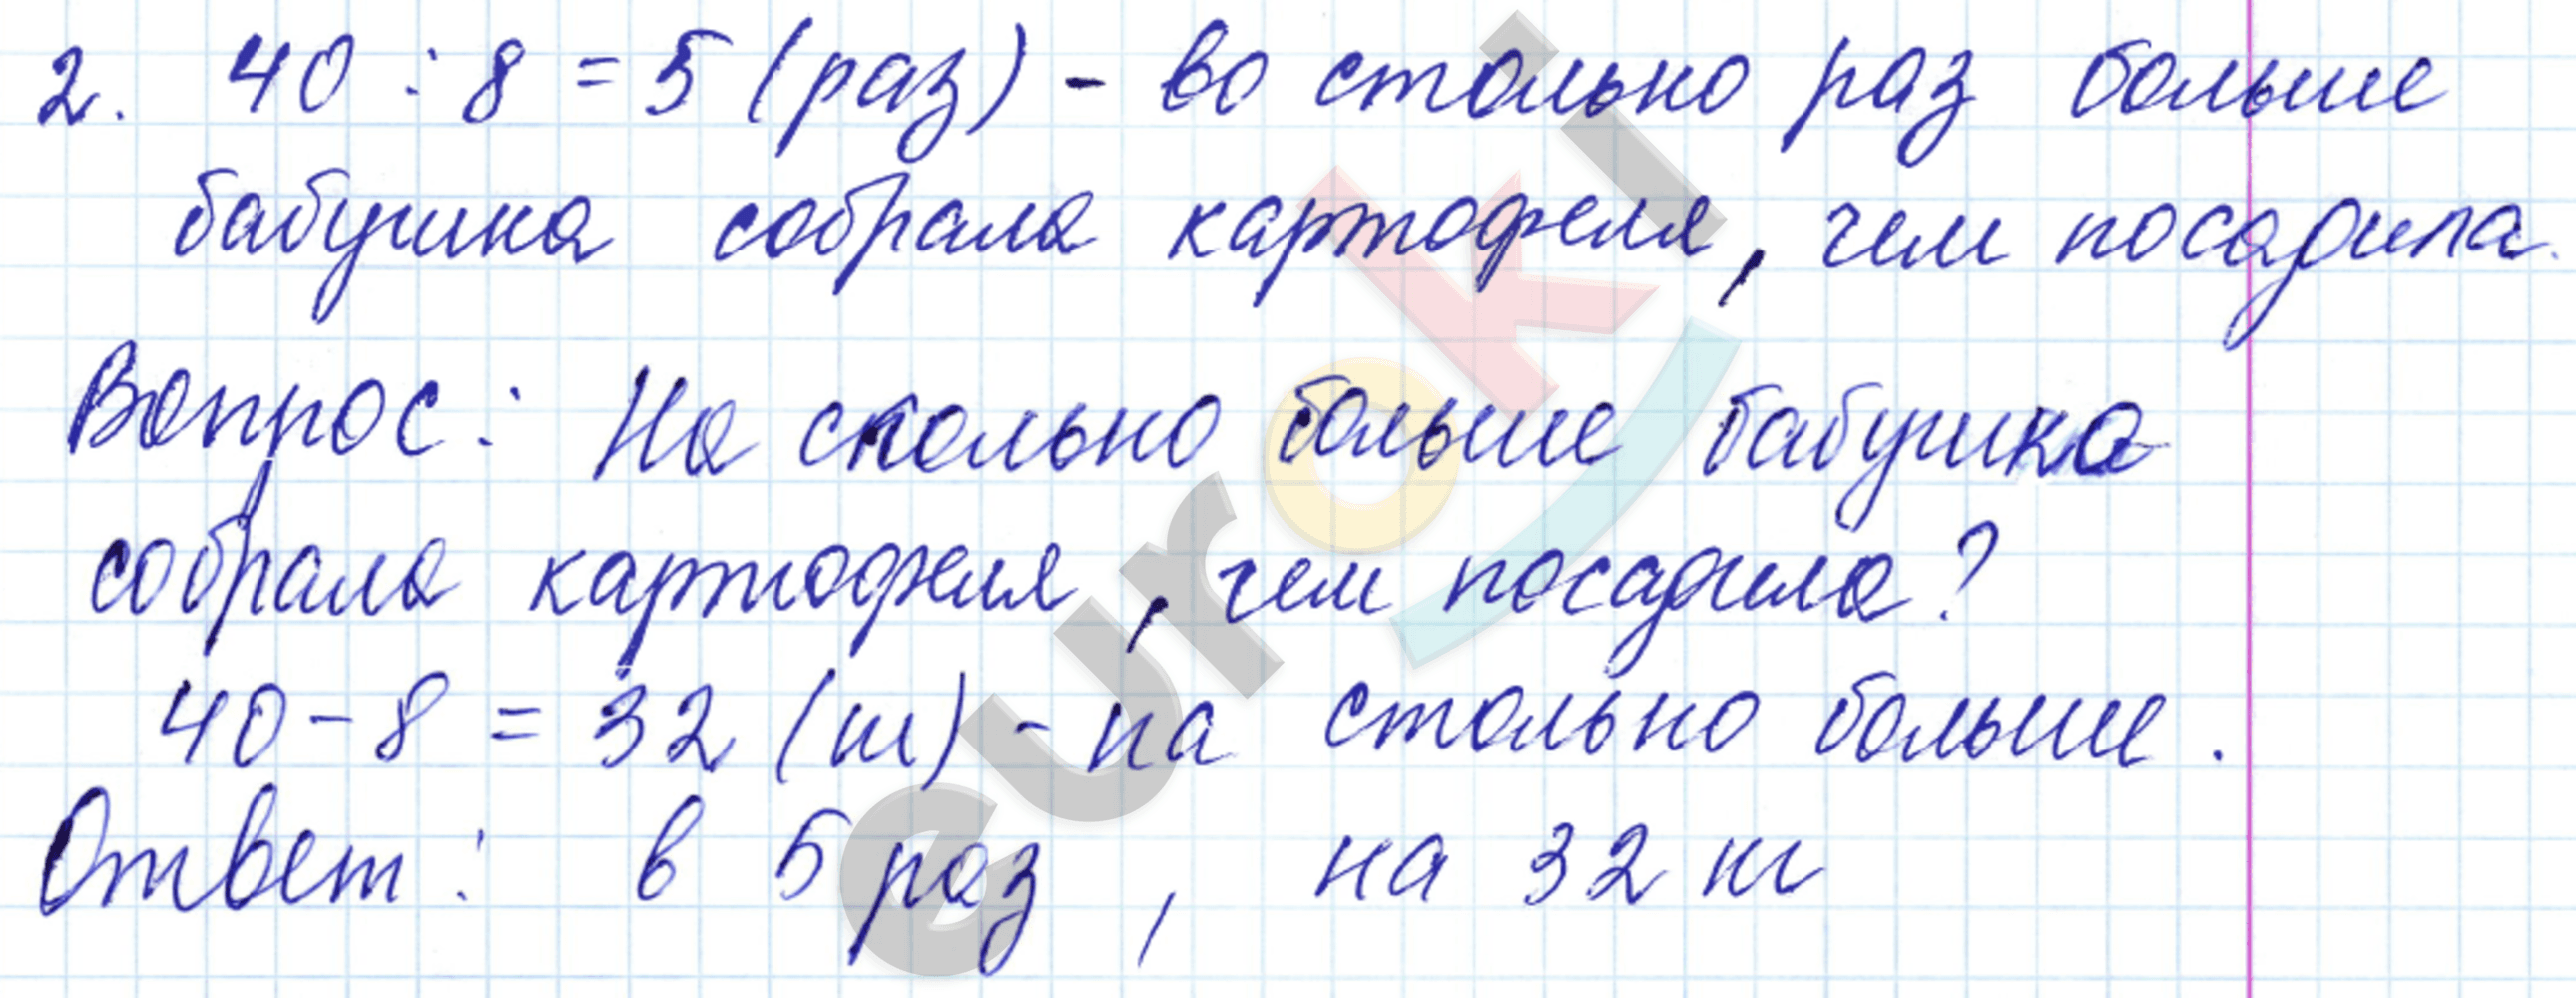 2. 40 : 8 = 5 (раз) - во столько раз больше
бабушка собрала картофеля, чем посадила.
Вопрос: На сколько больше бабушка
собрала картофеля, чем посадила?
40 - 8 = 32 (кг) - на столько больше.
Ответ: в 5 раз, на 32 кг
euroki